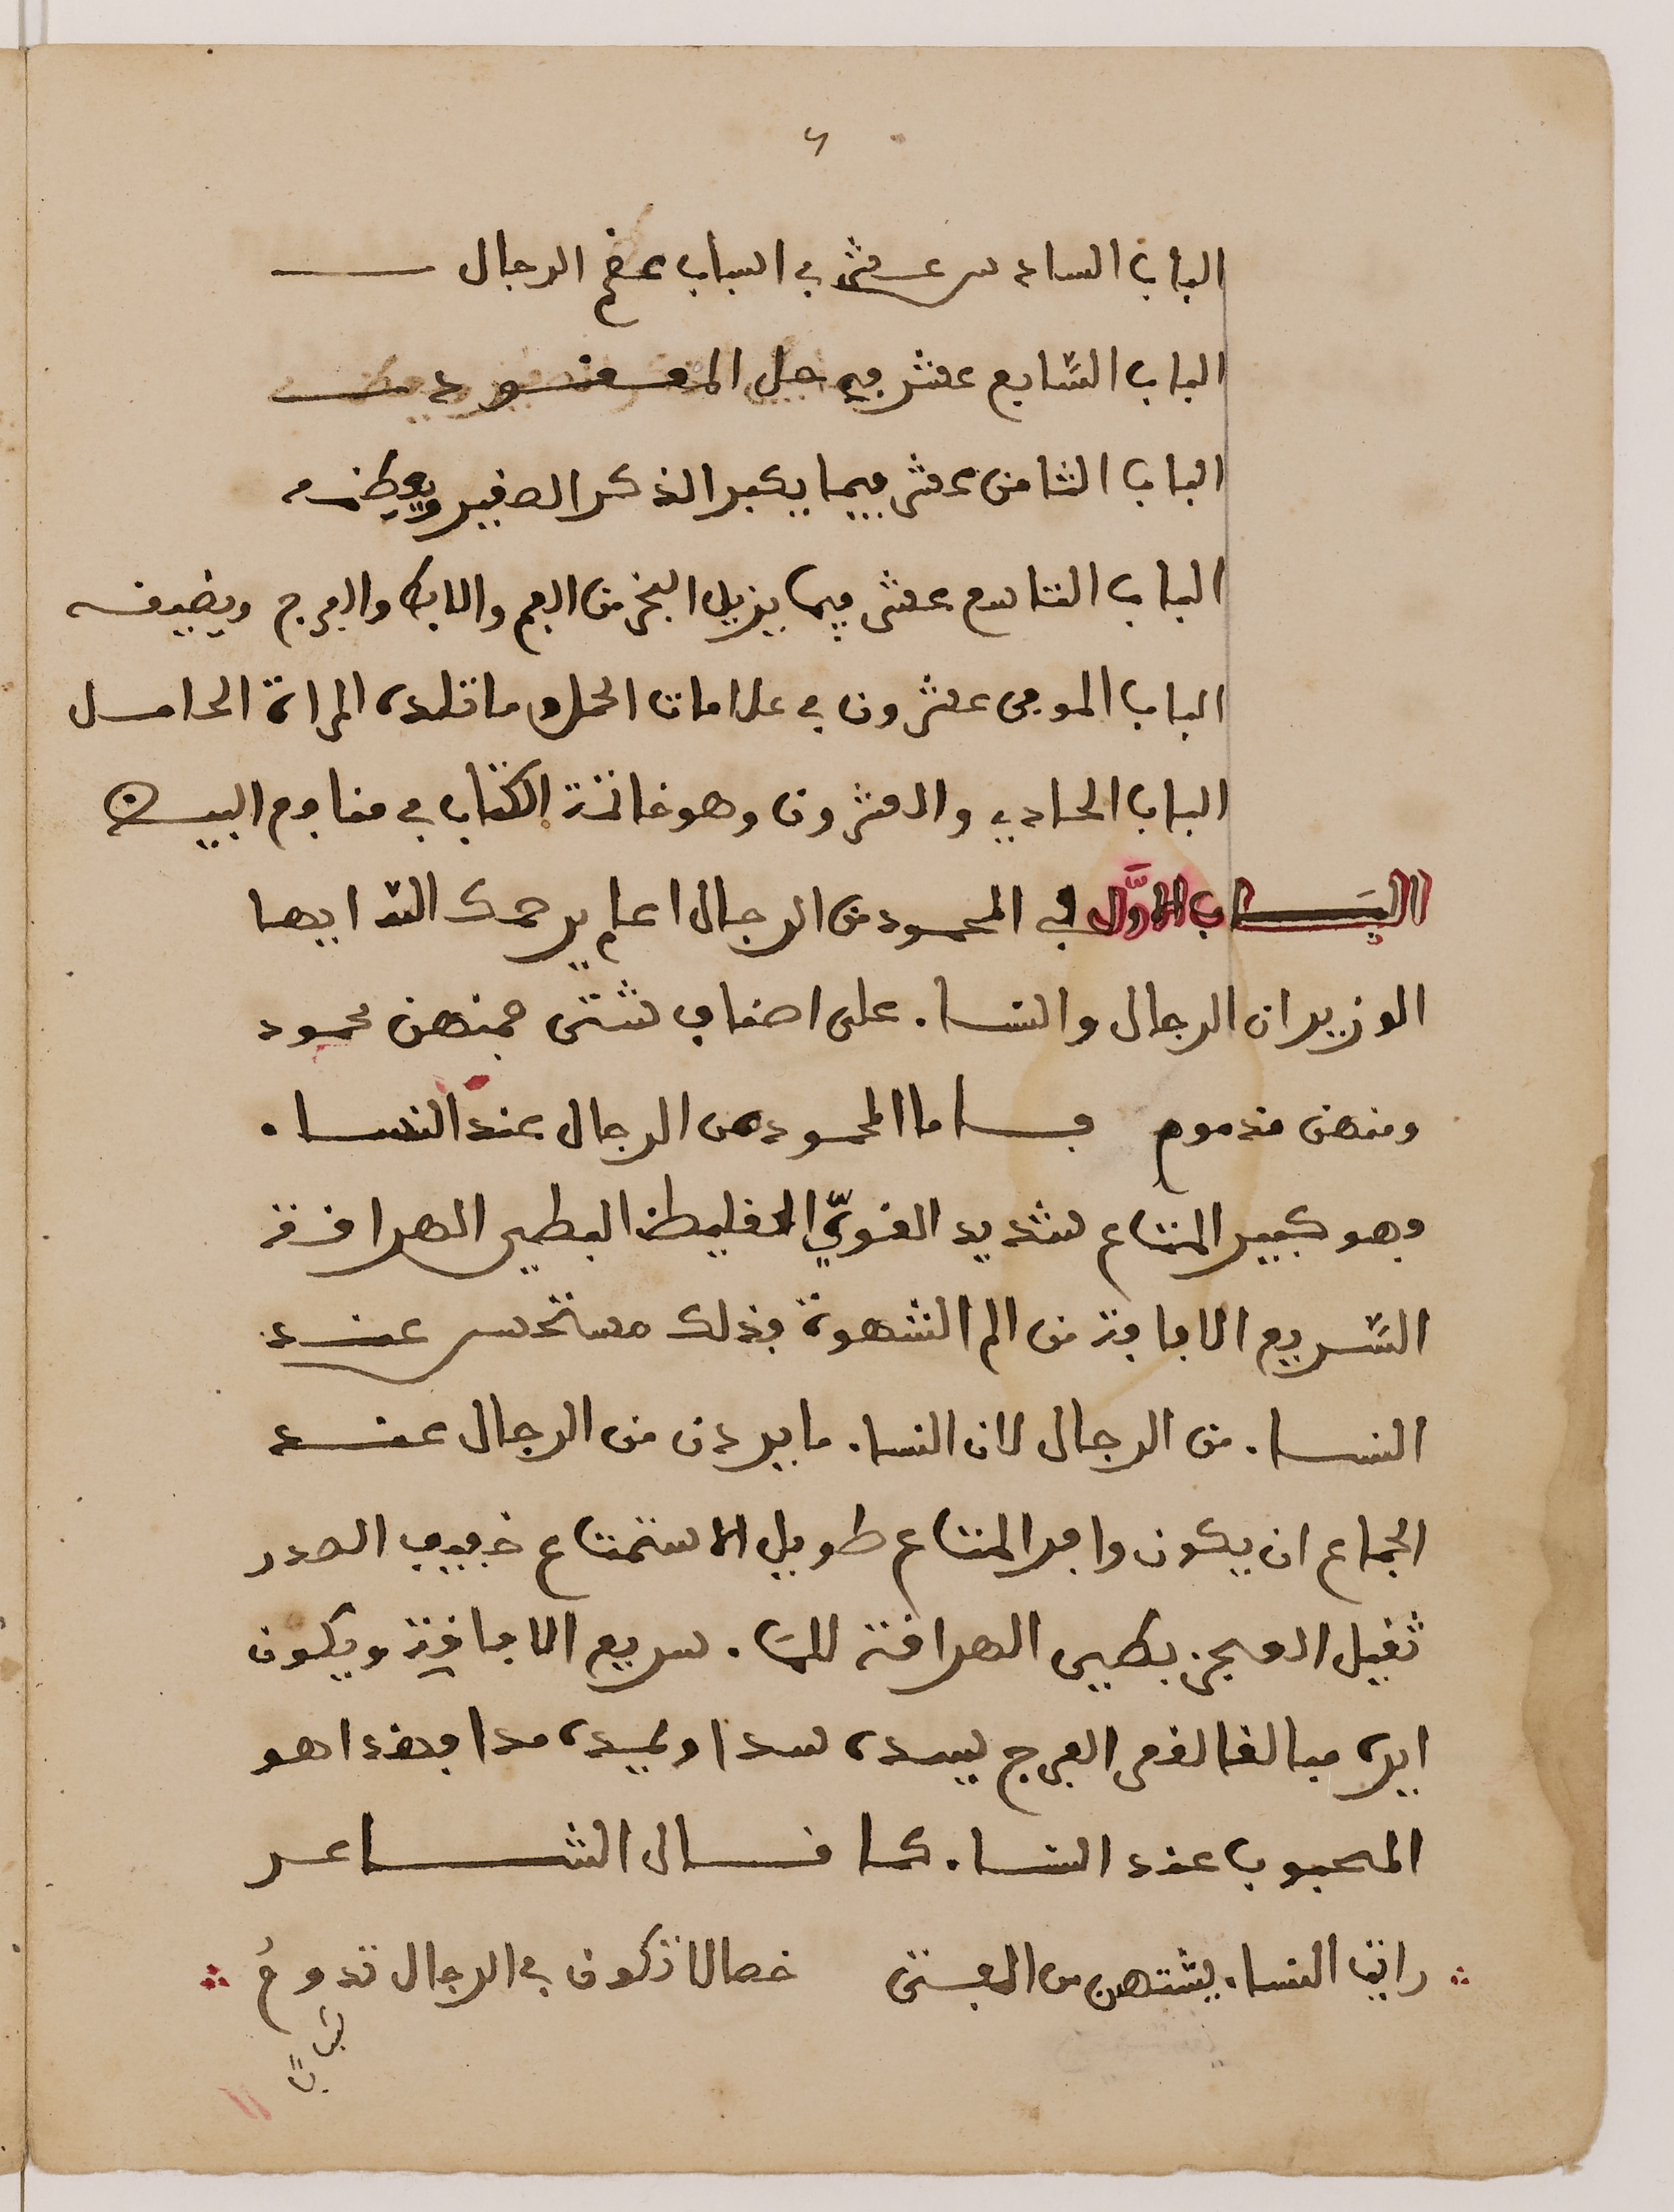 ٦
الباب السادس عشر في اسباب عقم الرجال
الباب السّابع عشر في حل المعقود
الباب الثامن عشر فيما يكبر الذكر الصغير ويعظمه
الباب التاسع عشر فيما يزيل البخر من الفم والابط والفرج ويضيقه
الباب الموفى عشرون في علامات الحمل وما تلده المراة الحامل
الباب الحادي والعشرون وهو خاتمة الكتاب في منافع البيض
البَاب الاوَّل في المحمود من الرجال اعلم يرحمك الله ايها
الوزير ان الرجال والنساء على اصناف شتى فمنهن محمود
ومنهن مذموم فاما المحمود من الرجال عند النساء
فهو كبير المتاع شديد القويّ الغليظ البطي الهراقة
السَّريع الافاقة من الم الشهوة فذلك مستحسن عند
النساء من الرجال لان النساء ما يردن من الرجال عند
الجماع ان يكون وافر المتاع طويل الاستمتاع خفيف الصدر
ثقيل العجز بطيى الهراقة للمَاء سريع الافاقة ويكون
ايره مبالغا لقعر الفرج يسده سدا ويمده مدا فهذا هو
المحبوب عند النساء كما قال الشاعر
رايت النساء يشتهن من الفتى خصالا تكون في الرجال تدومُ
شبابًا